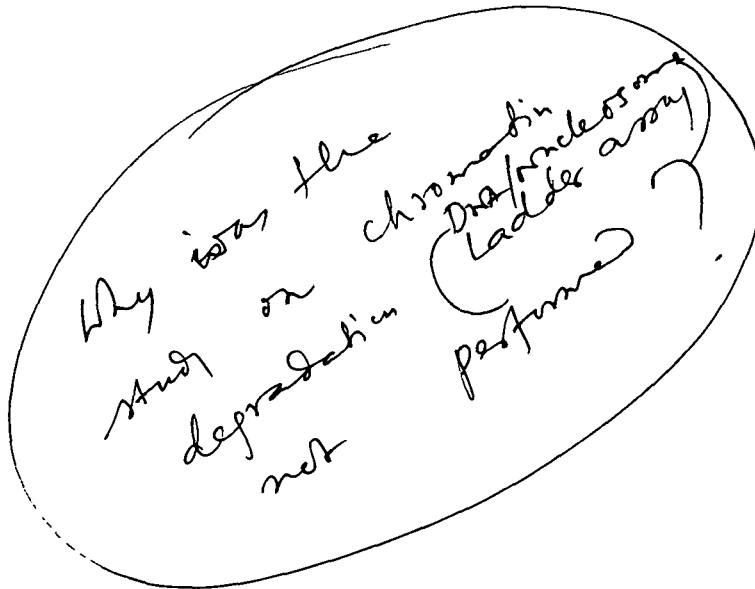 Why was the
study on chromatin
degradation (DNA/nucleosome
Ladder assay)
not performed ?